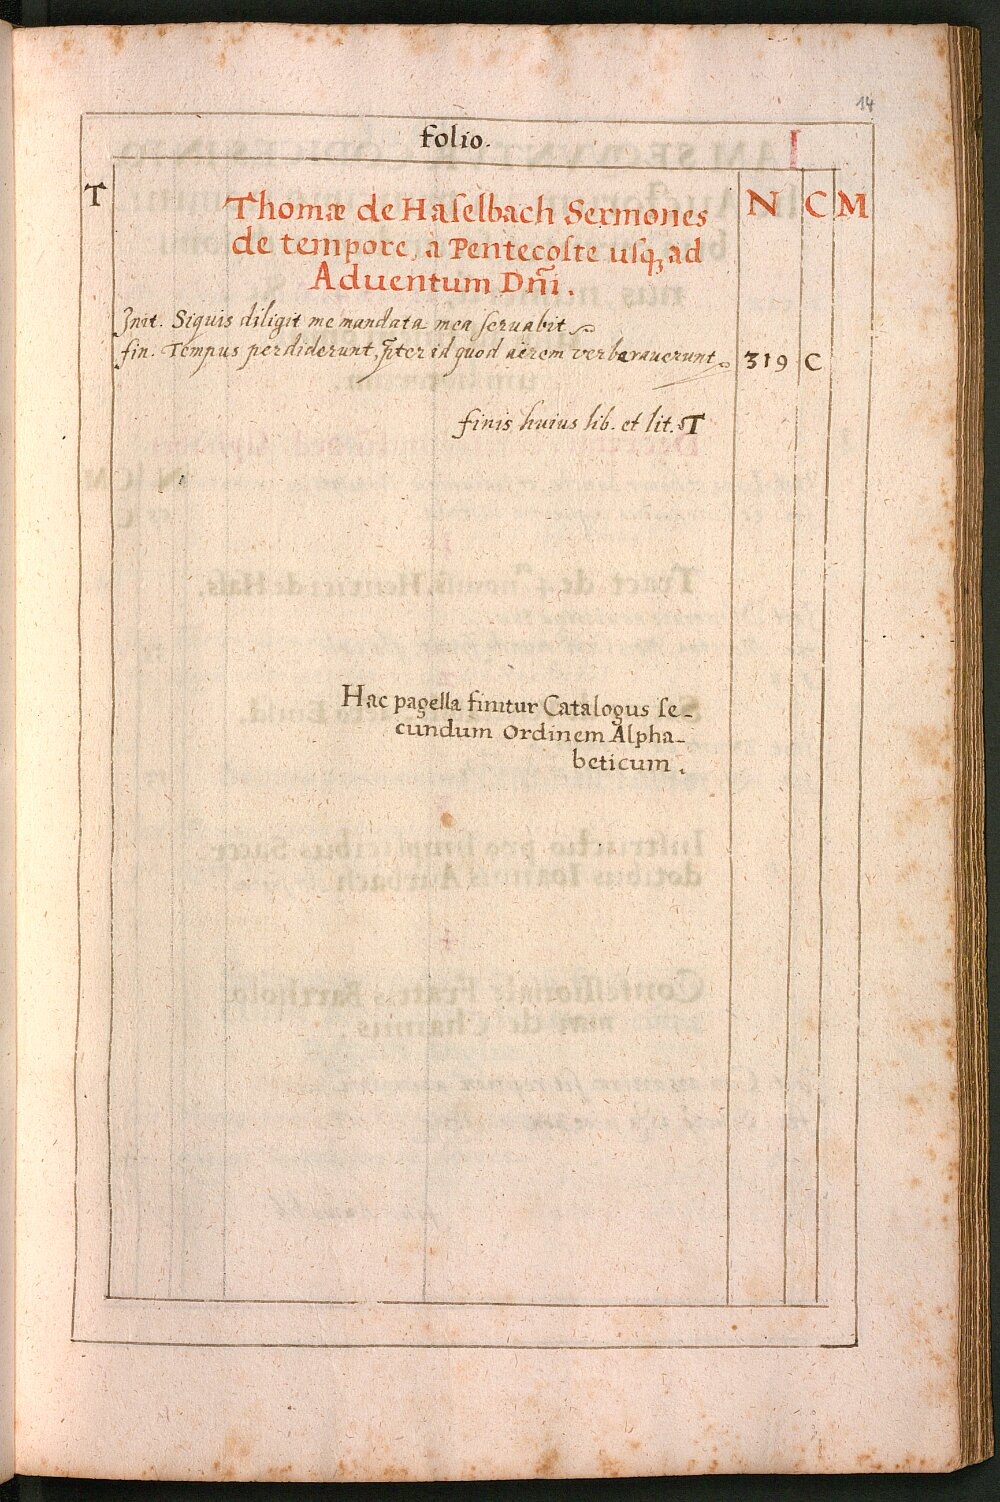 14
folio.
I
T
N C M
Thomæ de Haſelbach Sermones
de tempore, a Pentecoſte uſq, ad
Aduentum Dn̄i.
Init. Siquis diligit me mandata mea ſeruabit
fin. Tempus perdiderunt, p̱ter id quod aërem verberauerunt. 319 C
finis huius lib. et lit. T
Hac pagella finitur Catalogus ſe-
cundum Ordinem Alpha-
beticum.